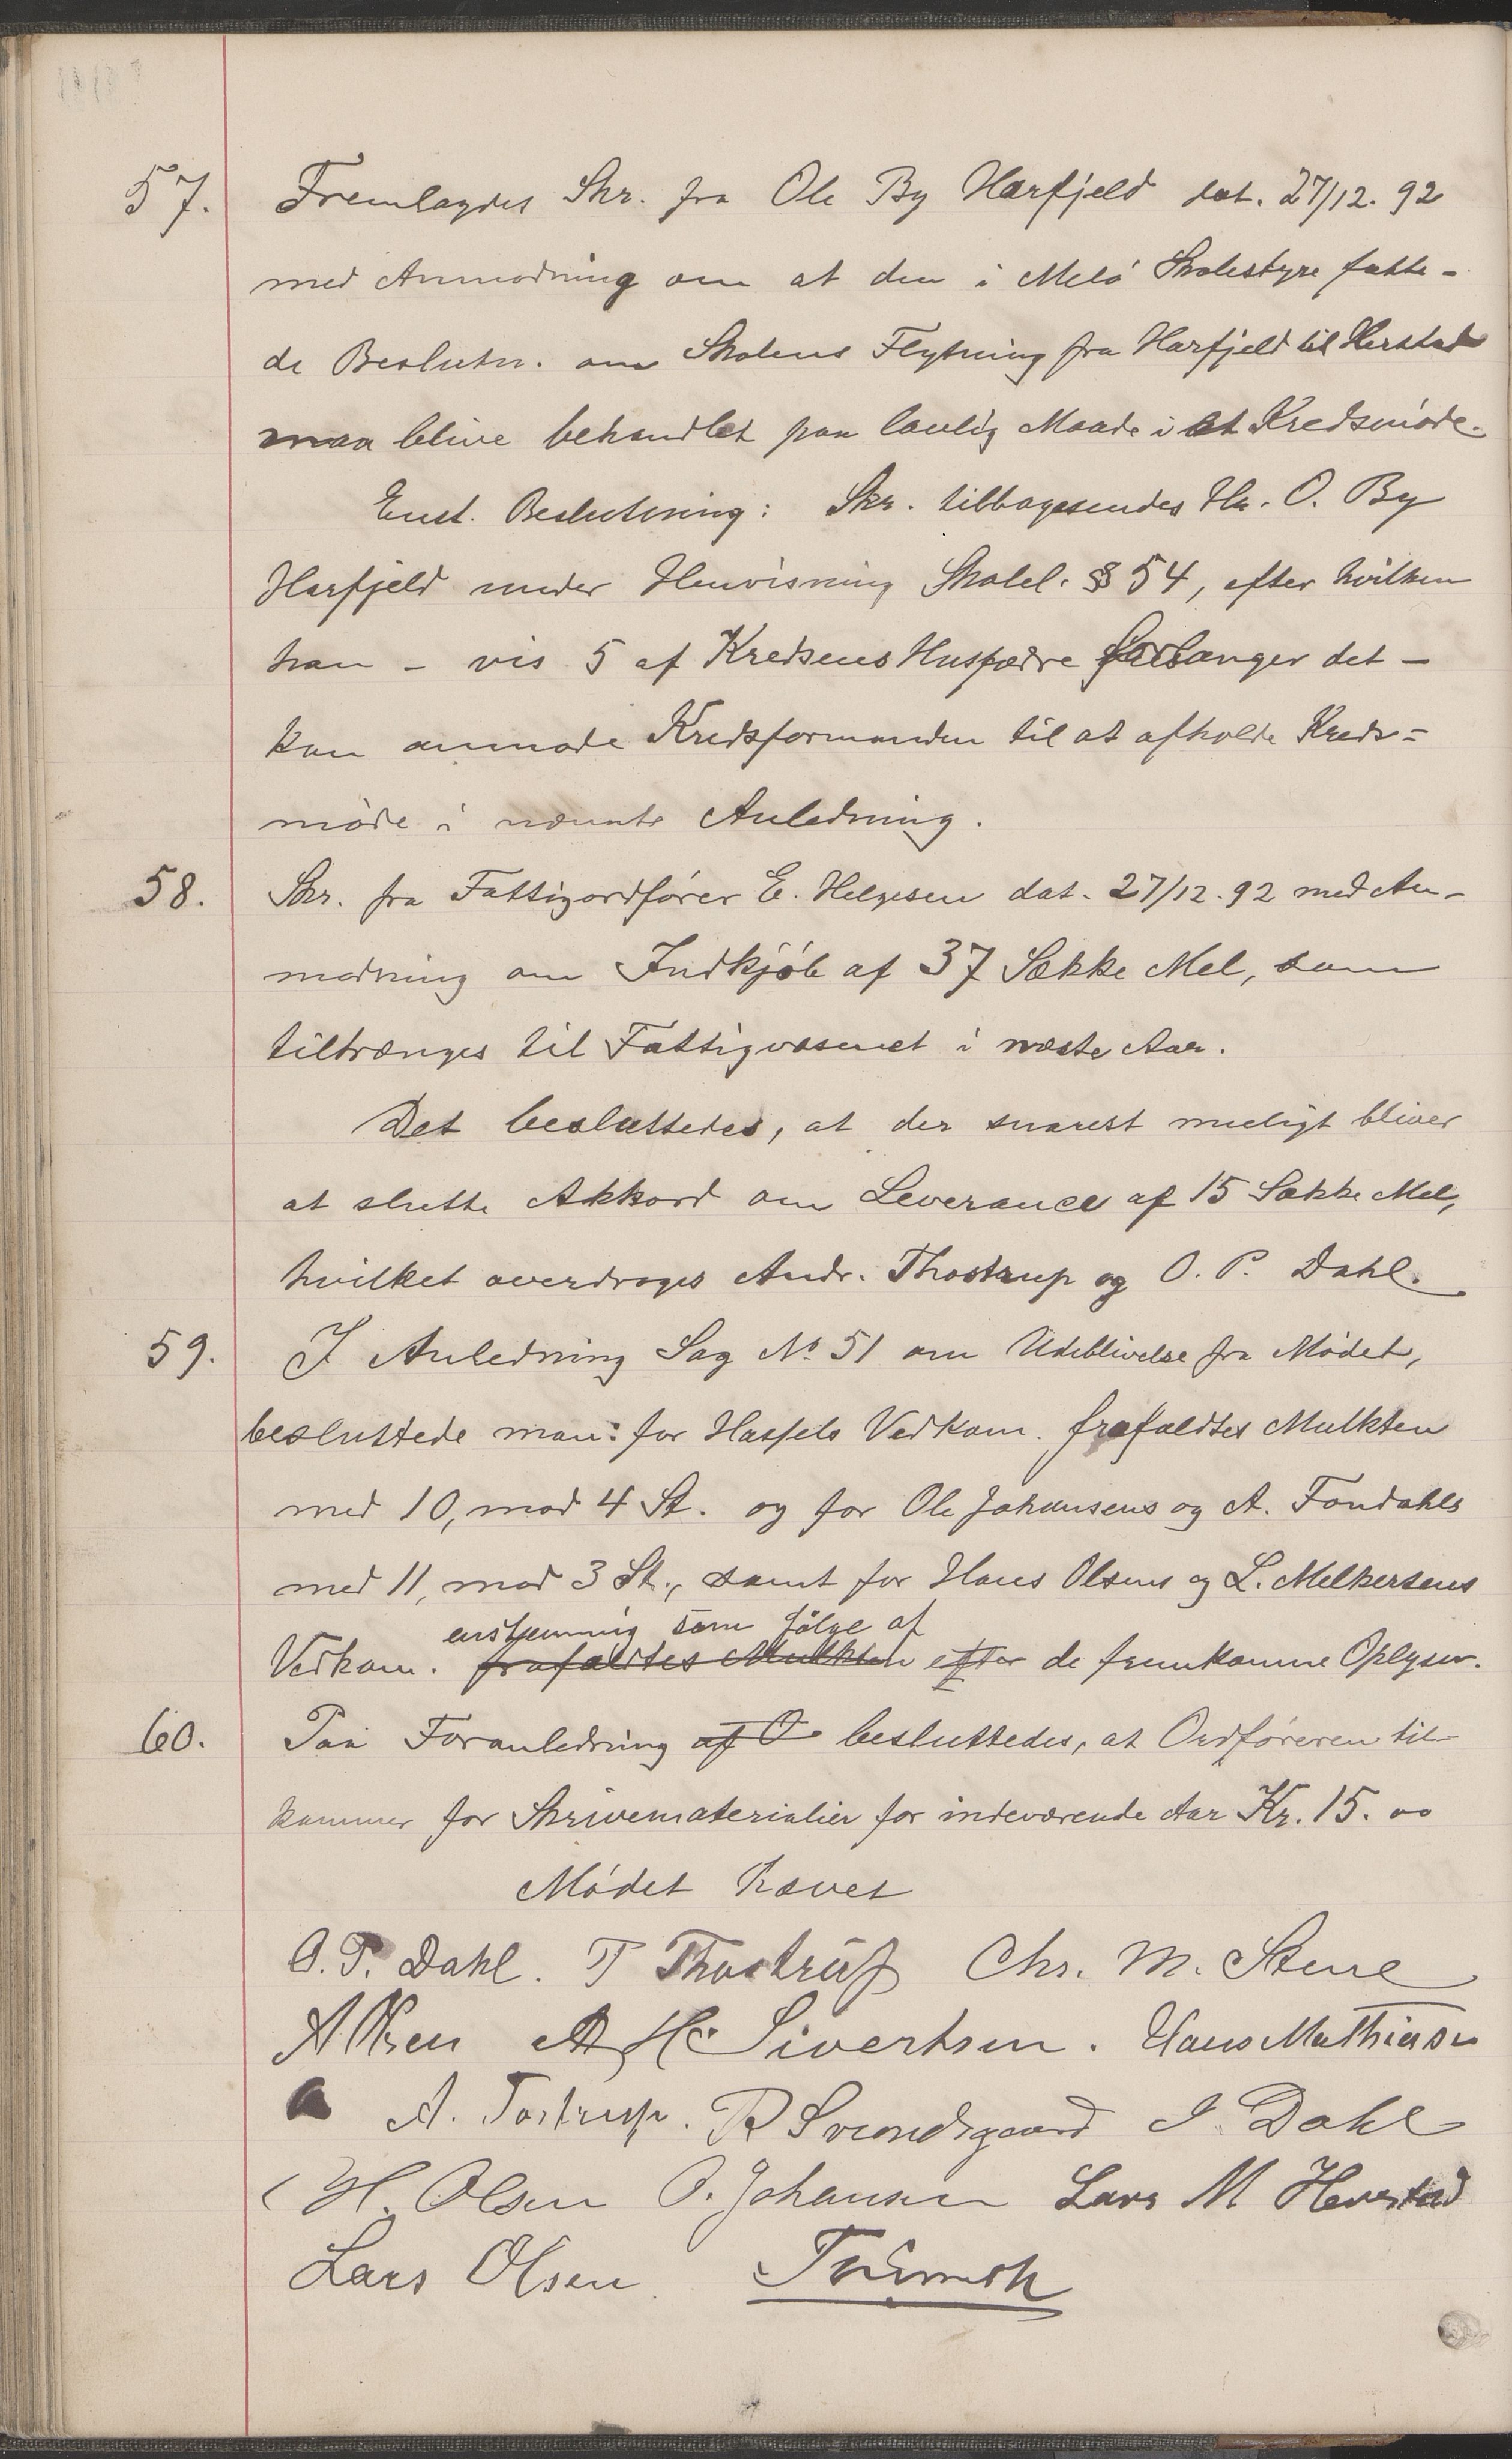 57. Fremlagdes Skr. fra Ole By Harfjeld dat. 27/12. 92
med Anmodning om at den i Melø Skolestyre fatte-
de Beslutn. om Skolens Flytning fra Harfjeld til Herstad
maa blive behandlet paa lovlig Maade i et Kredsmøde.
Enst. Beslutning: Skr. tilbagesendes Hr. O. By
Harfjeld under Henvisning Skolel. § 54, efter hvilken
han - vis 5 af Kredsens Husfædre forlanger det -
kan anmode Kredsformanden til at afholde Kreds=
møde i nævnte Anledning.
58. Skr. fra Fattigordfører E. Helgesen dat. 27/12. 92 med An-
modning om Indkjøb af 37 Sække Mel, som
tiltrænges til Fattigvæsenet i næste Aar.
Det besluttedes, at der snarest muligt bliver
at slutte Akkord om Leverance af 15 Sække Mel,
hvilket overdroges Andr. Thostrup og O. P. Dahl.
59. I Anledning Sag No 51 om Udeblivelse fra Mødet,
besluttede man: for Hassels Vedkom. frafaldtes Mulkten
med 10, mod 4 St. og for Ole Johansens og A. Fondahls
med 11, mod 3 St., samt for Hans Olsens og L. Melkersens
enstemmig som følge af
Vedkom. frafaldtes Mulkten efter de fremkomne Oplysn.
60. Paa Foranledning af O besluttedes, at Ordføreren til-
kommer for Skrivematerialier for indeværende Aar Kr. 15. 00
Mødet hævet
O. P. Dahl. T Thostrup Chr. M. Stene
A Olsen A H Sivertsen. Hans Mathiasen
A. Tostrup. R Svendsgaard I. Dahl
H. Olsen O. Johansen Lars M Heverstad
Lars Olsen